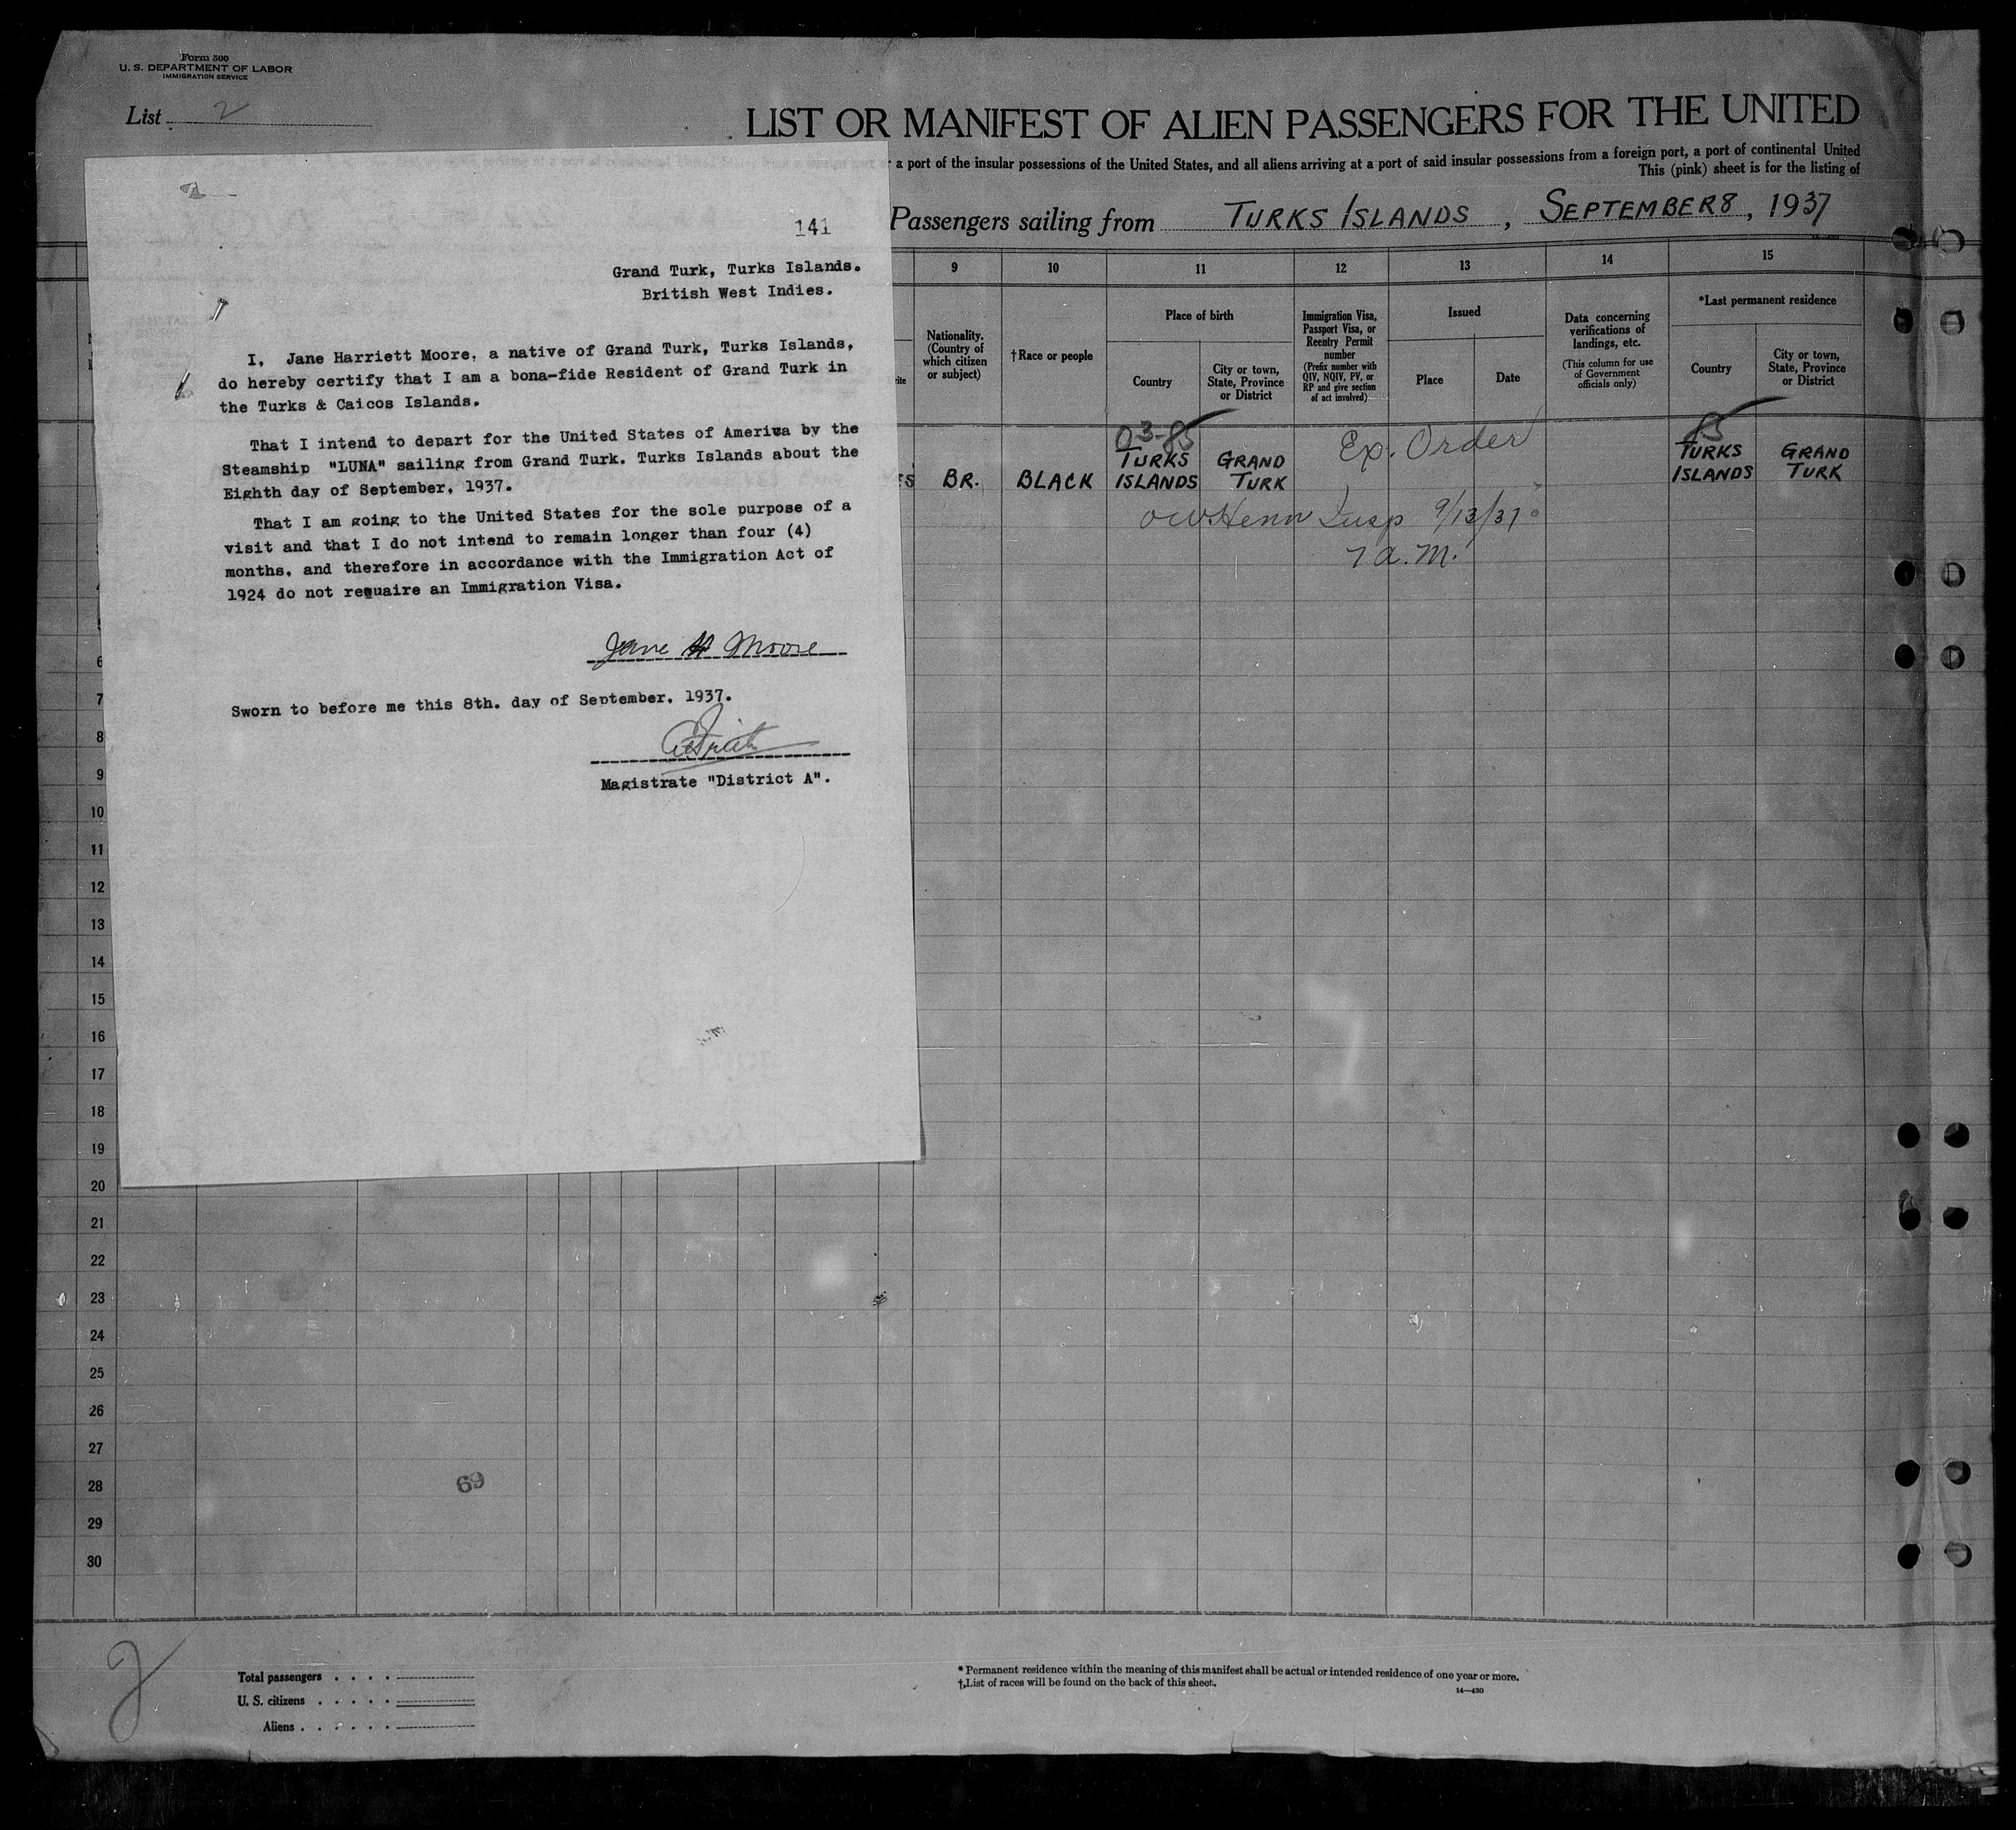 Form 500
U. S. DEPARTMENT OF LABOR
IMMIGRATION SERVICE
List 2
LIST OR MANIFEST OF ALIEN PASSENGERS FOR THE UNITED
a port of the insular possessions of the United States, and all aliens arriving at a port of said insular possessions from a foreign port, a port of continental United
This (pink) sheet is for the listing of
Passengers sailing from TURKS ISLANDS, SEPTEMBER 8, 1937
141
Grand Turk, Turks Islands.
British West Indies.
I, Jane Harriett Moore, a native of Grand Turk, Turks Islands,
do hereby certify that I am a bona-fide Resident of Grand Turk in
the Turks & Caicos Islands.
That I intend to depart for the United States of America by the
Steamship "LUNA" sailing from Grand Turk. Turks Islands about the
Eighth day of September, 1937.
That I am going to the United States for the sole purpose of a
visit and that I do not intend to remain longer than four (4)
months, and therefore in accordance with the Immigration Act of
1924 do not requaire an Immigration Visa.
Jane H Moore
Sworn to before me this 8th. day of September, 1937.
Magistrate "District A".
9 10 11 12 13 14 15
Nationality. (Country of which citizen or subject)
†Race or people
Place of birth
Country
City or town, State, Province or District
Immigration Visa, Passport Visa, or Reentry Permit number
(Prefix number with QIV, NQIV, PV, or RP and give section of act involved)
Issued
Place
Date
Data concerning verifications of landings, etc.
(This column for use of Government officials only)
*Last permanent residence
Country
City or town, State, Province or District
BR.
BLACK
TURKS ISLANDS
GRAND TURK
Ex. Order
TURKS ISLANDS
GRAND TURK
Insp 9/13/37
7 a.m.
6
7
8
9
10
11
12
13
14
15
16
17
18
19
20
21
22
23
24
25
26
27
28
29
30
69
2
Total passengers
U. S. citizens
Aliens
* Permanent residence within the meaning of this manifest shall be actual or intended residence of one year or more.
† List of races will be found on the back of this sheet.
14—430